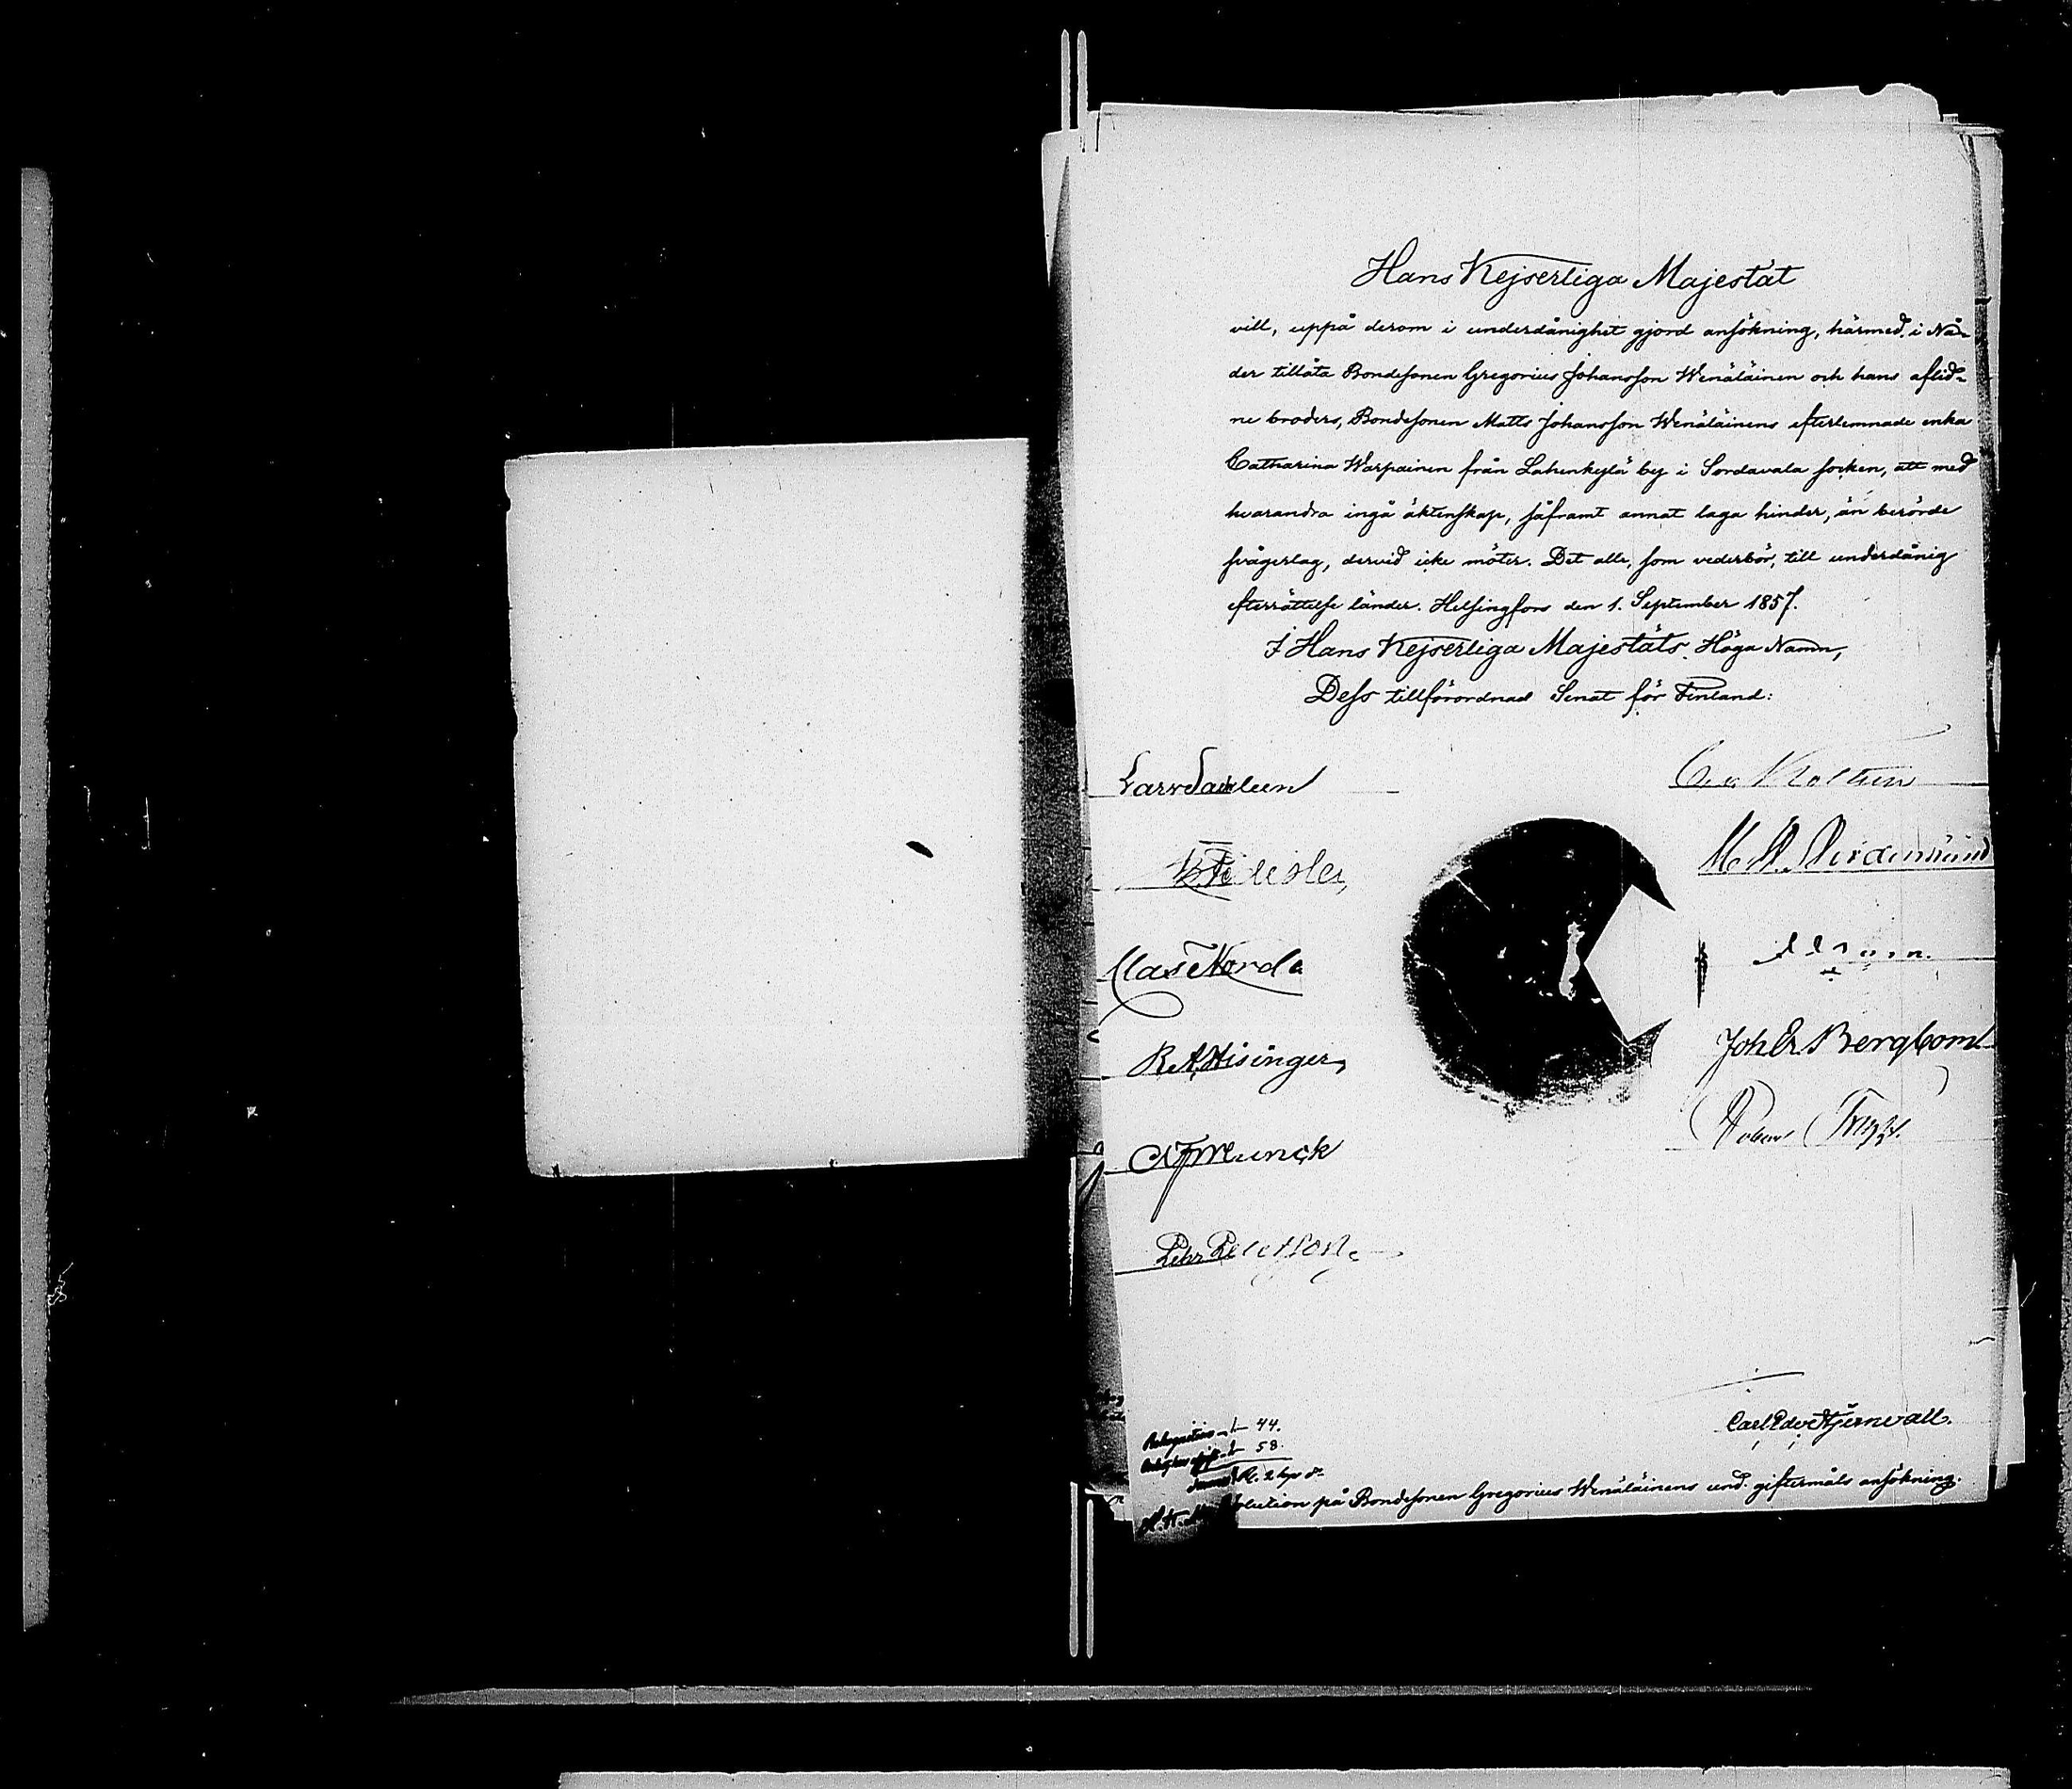 Hans Kejserliga Majestät
vill, uppå derom i underdånighet gjord ansökning, härmed i Nå-
der tillåta Bondesonen Gregorius Johansson Wenäläinen och hans aflid-
ne broders, Bondesonen Matts Johansson Wenäläinens efterlemnade enka
Catharina Warpainen från Lahenkylä by i Sordavala socken, att med
hvarandra ingå äktenskap, såframt annat laga hinder, än berörde
svågerlag, dervid icke möter. Det alle, som vederbör, till underdånig
efterrättelse länder. Helsingfors den 1. September 1857.
I Hans Kejserliga Majestäts Höga Namn,
Dess tillförordnad Senat för Finland:
Lars Sackleen
Clas Nord
R. A. Hisinger
Joh Er Bergbom
Robert Trapp.
Munck
Pehr
Carl Edv Stjernvall.
44.
58.
2
på Bondesonen Gregorius Wenäläinens und. giftermåls ansökning.